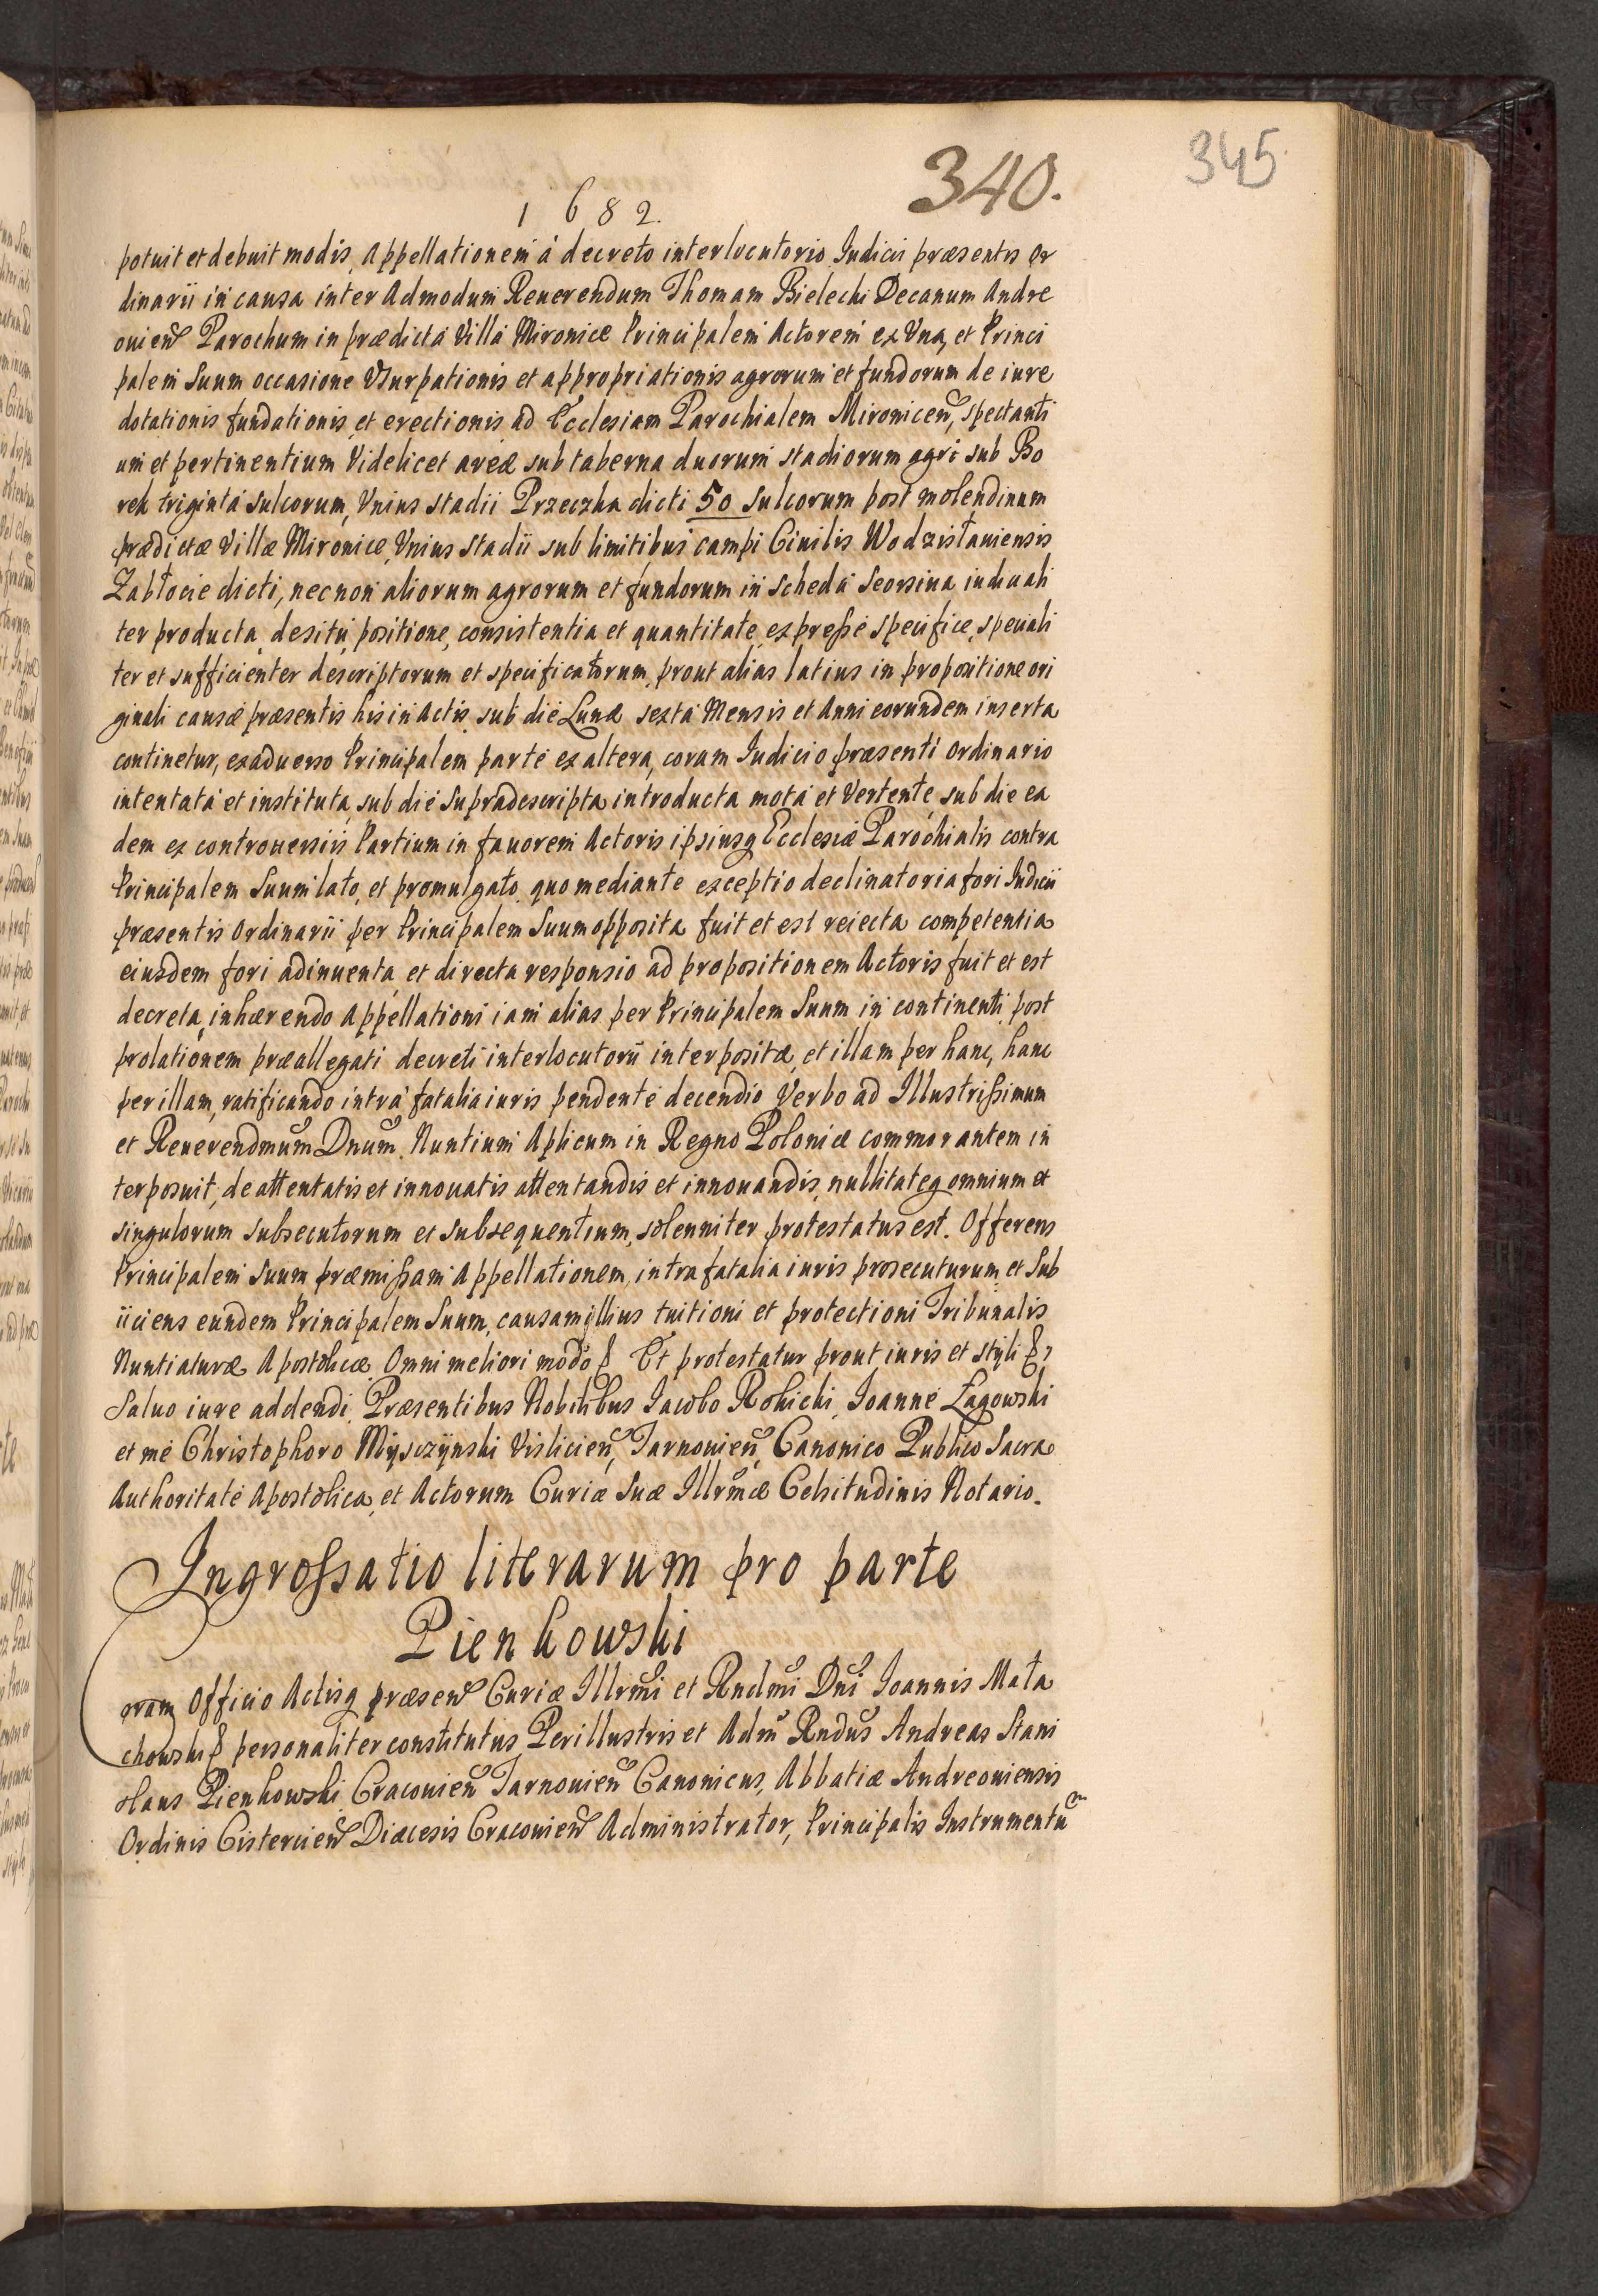 340.
345
1682.
potuit et debuit modis, Appellationem à decreto interlocutorio Iudicii præsentis Or
dinarii in causa inter Admodum Reuerendum Thomam Bielecki Decanum Andre
ouien Parochum in prædicta Villa Mironice Principalem Actorem ex Vna, et Princi
palem Suum occasione Vsurpationis et appropriationis agrorum et fundorum de iure
dotationis fundationis et erectionis ad Ecclesiam Parochialem Mironicen, spectanti
um et pertinentium Videlicet areæ sub taberna duorum stadiorum agri sub Bo
rek triginta sulcorum, Vnius stadii Przeczka dicti 50 sulcorum post molendinum
prædictæ Villæ Mironice, Vnius stadii sub limitibus campi Ciuilis Wodzistauiensis
Zabłocie dicti, necnon aliorum agrorum et fundorum in scheda seorsiua iudiciali
ter producta, de situ, positione, consistentia et quantitate expresse specifice, speciali
ter et sufficienter descriptorum et specificatorum, prout alias latius in propositione ori
ginali causæ præsentis his in Actis, sub die Lunæ sexta Mensis et Anni eorundem inserta
continetur, ex aduerso Principalem parte ex altera, coram Iudicio præsenti Ordinario
intentata et instituta, sub die Supradescripta introducta mota et Vertente, sub die ea
dem ex controuersiis Partium in fauorem Actoris ipsiusq Ecclesiæ Parochialis contra
Principalem Suum lato, et promulgato, quo mediante exceptio declinatoria fori Iudicii
præsentis Ordinarii per Principalem Suum opposita fuit et est reiecta competentia
eiusdem fori adinuenta, et directa responsio ad propositionem Actoris fuit et est
decreta, inhærendo Appellationi iam alias per Principalem Suum in continenti post
prolationem præallegati decreti interlocutorii interpositæ, et illam per hanc, hanc
per illam, ratificando intra fatalia iuris pendente decendio Verbo ad Illustrissimum
et Reuerendmum Dnum. Nuntium Aplicum in Regno Poloniæ commorantem in
terposuit, de attentatis et innouatis attentandis et innouandis, nullitateq omnium et
singulorum subsecutorum et subsequentium, solenniter protestatus est. Offerens
Principalem Suum præmissam Appellationem, intra fatalia iuris prosecuturum, et Sub
iiciens eundem Principalem Suum, causam illius tuitioni et protectioni Tribunalis
Nuntiaturæ Apostolicæ Omni meliori modo & Et protestatur prout iuris et styli &
Saluo iure addendi. Præsentibus Nobilibus Iacobo Rokicki, Ioanne Łagowski
et me Christophoro Mysczynski Vislicien, Tarnouien, Canonico Publico Sacra
Authoritate Apostolica, et Actorum Curiæ Suæ Illrmæ Celsitudinis Notario.
Ingrossatio literarum pro parte
Pienkowski
Coram Officio Actisq præsen Curiæ Illrmi et Rndmi Dni Ioannis Mała
chowski & personaliter constitutus Perillustris et Adm Rndus Andreas Stani
slaus Pienkowski Cracouien Tarnouien Canonicus, Abbatiæ Andreouiensis
Ordinis Cistercien Diæcesis Cracouien Administrator, Principalis Instrumentu